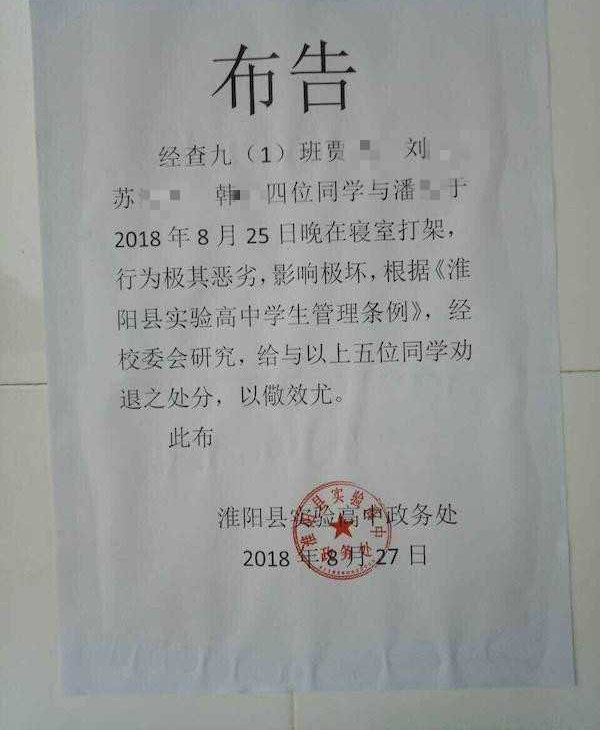 布告
经查九（1）班贾 刘
苏 韩 四位同学与潘 于
2018 年 8 月 25 日晚在寝室打架，
行为极其恶劣，影响极坏，根据《淮
阳县实验高中学生管理条例》，经
校委会研究，给与以上五位同学劝
退之处分，以儆效尤。
此布
淮阳县实验高中政务处
2018 年 8 月 27 日
淮阳县实验高中
政务处